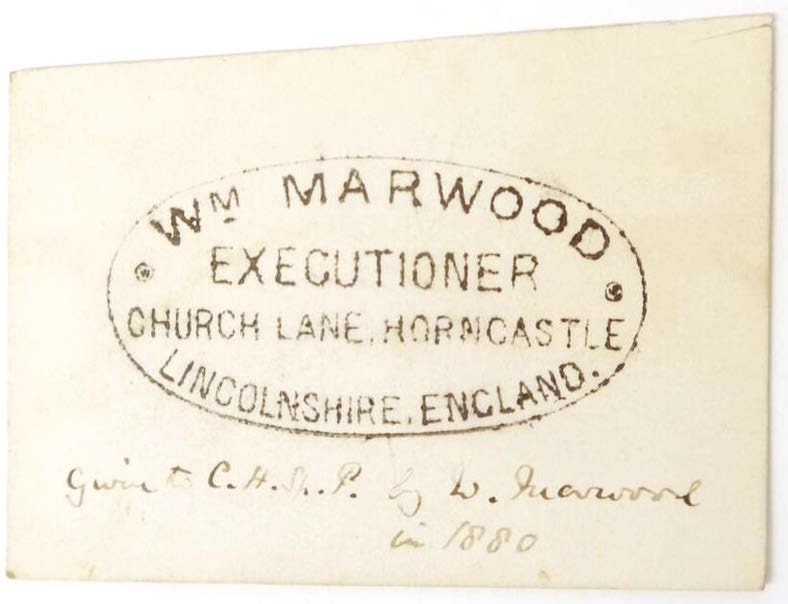 WM MARWOOD
EXECUTIONER
CHURCH LANE, HORNCASTLE
LINCOLNSHIRE, ENGLAND.
Given to C. H. P. by W. Marwood
in 1880